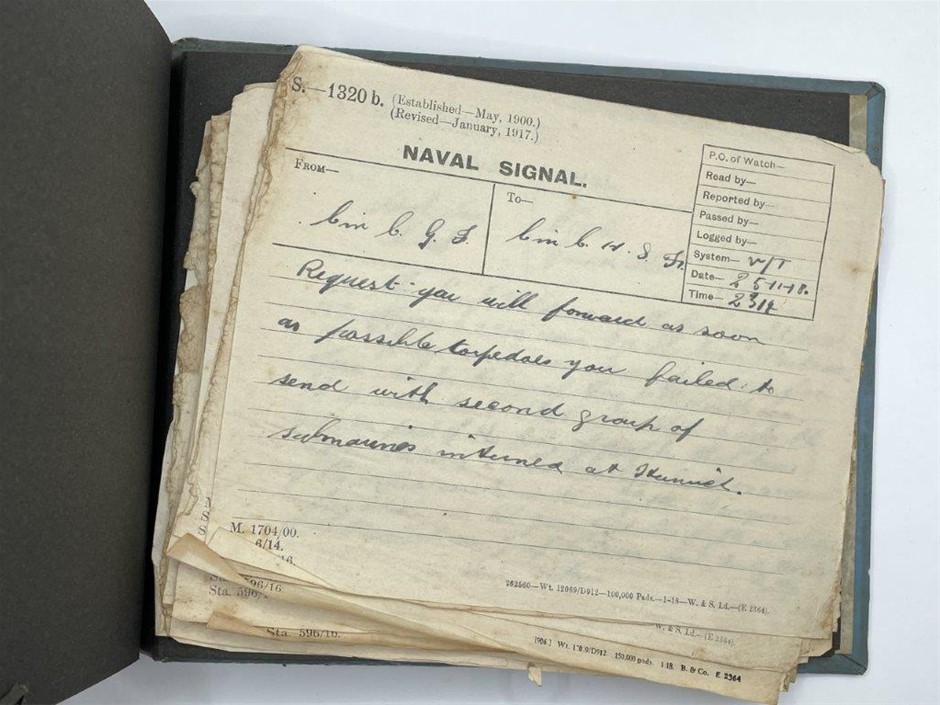 S.—1320 b. (Established—May, 1900.)
(Revised—January, 1917.)
NAVAL SIGNAL.
FROM—
To—
P.O. of Watch—
Read by—
Reported by—
Passed by—
Logged by—
System— W/T
Date— 25-11-18.
Time— 2314
C in C. G. F.
C in C. H. S. F.
Request you will forward as soon
as possible torpedoes you failed to
send with second group of
submarines interned at Harwich.
M. 1704/00.
6/14.
16.
Sta. 596/16.
262560—Wt. 12069/D912—100,000 Pads.—1-18—W. & S. Ld.—(E 2364).
W. & S. Ld.—(E 2364).
Sta. 596/16.
150,000 pads. 1.18. B. & Co. E 2364